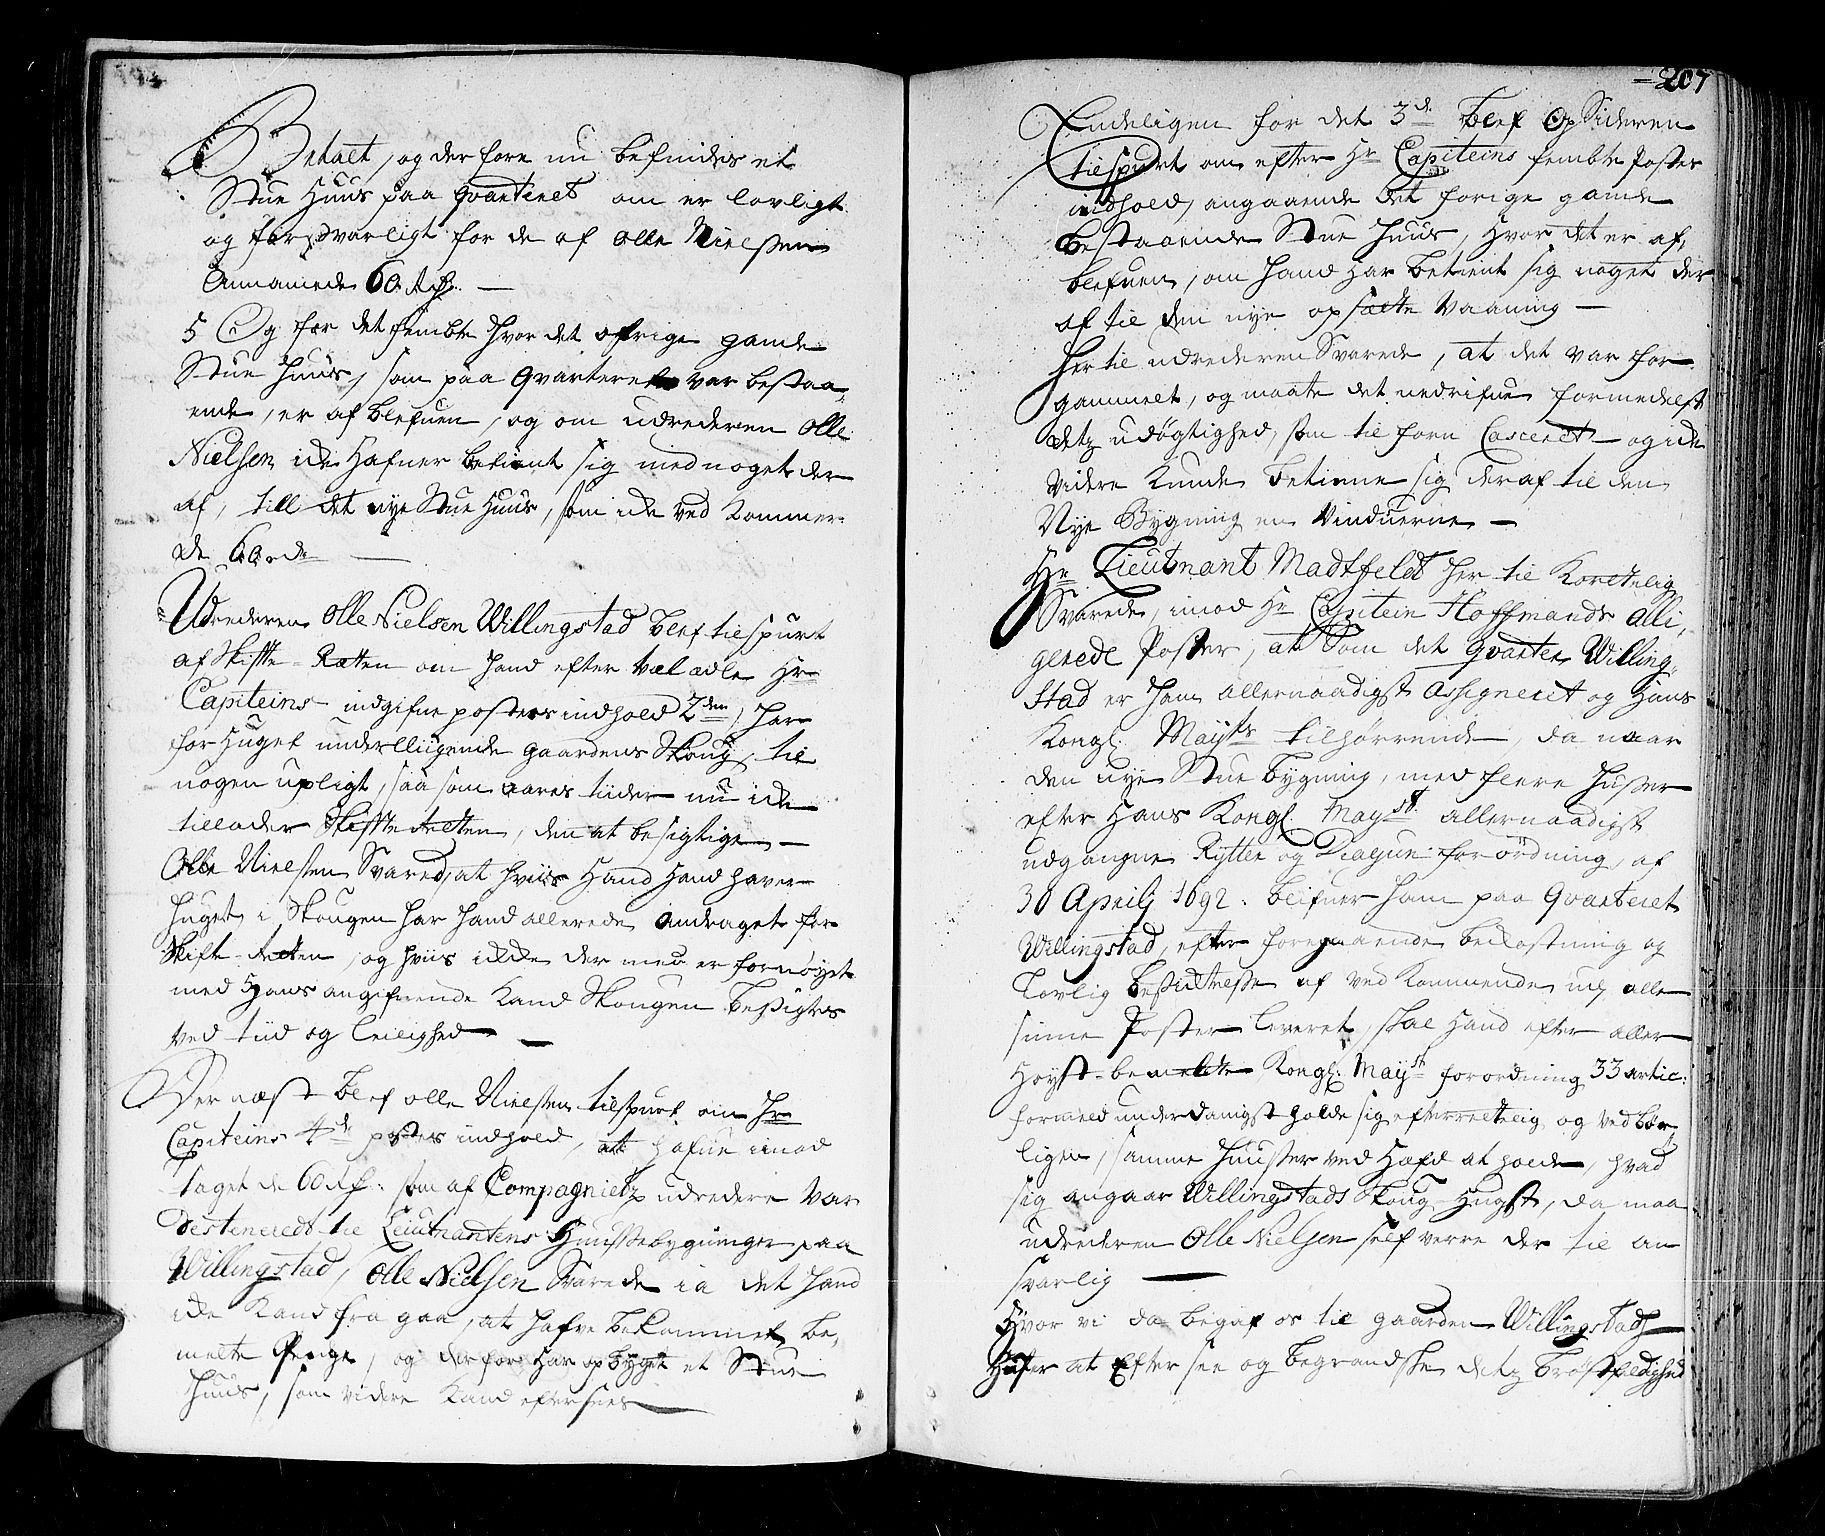 Betalt, og der fore nu befindes et
Stue Huus paa Qvarteret om er lovligt
og forsvarligt for de af Olle Nielsen
Annamede 60 Rdr. —
5 Og for det fembte hvor det øfrige gamle
Stue Huus, som paa Qvarteret var bestaa-
ende, er af blefuen, og om udrederen Olle
Nielsen, icke Hafuer betient sig med noget der
af, till det nye Stue Huus, som icke ved kommer
de 60 rd. —
Udrederen Olle Nielsen Willingstad blef tilspurt
af Skifte Retten om hand efter vel ædle Hr
Capiteins indgifne posters indhold 2den, har
for Huget underlligende gaardens Skoug, til
nogen upligt, saa som aares tiider nu icke
tillader Skiffte Retten, den at besigtige —
Olle Nielsen Svarede, at hviis Hand haver
huget i Skougen har hand allerede andraget for
Skifte Retten, og hviis icke der med er fornøyet
med Hans angifuende kand Skougen besigtes
ved tiid og leilighed —
Der næst blef Olle Nielsen tilspurt om Hr
Capiteins 4de postes indhold, at hafue imod
taget de 60 Rdr. som af Compagniets udredere var
destineredt til Lieutnantens Huussebygninger paa
Willingstad, Olle Nielsen Svarede ia det hand
icke kand fra gaa, at hafve bekommet be-
melte Penge, og derfor har opbyget et Stue
huus, som videre kand eftersees —
207
Endeligen for det 3de blef Opsideren
tilspurt om efter Hr Capiteins fembte Postes
indhold, angaaende det forige gamle
bestaaende Stue Huus, hvor det er af,
blefuen, om hand har betient sig noget der
af til den nye opsatte Vaaning —
Her til udrederen Svarede, at det var for
gammelt, og maate det nedrifue formedelst
detz udøgtighed, som til forn Casceret og icke
videre kunde betiene sig deraf til den
Nye Bygning en Vinduerne —
Hr Lieutnant Madtfeldt her til kortelig
Svarede, imod Hr Capitein Hoffmands Alli,
gerede Poster, at som det Qvarter Willing-
stad er ham allernaadigst Assigneret og Hans
Kongl. Mayts tilhørrende, da naar
den nye Stue bygning, med flere Husser
efter Hans Kongl. Mayst. allernaadigst
udgangne Rytter og Dragun forordning, af
30 Aprilj 1692. blifuer ham paa Qvarteret
Willingstad, efter foregaaende bekostning og
Lovlig besictelse af ved kommende udj alle
sinne Poster leveret, skal Hand efter aller
Høyst-bemelte Kongl: Mayst forordning 33 artic:
formeld underdanigst holde sig efterrettelig og ved bør
ligen, samme Huusser ved Hæfd at holde, hvad
sig angaar Willingstads Skoug Hugst, da maa
udrederen Olle Nielsen self verre der til an
svarlig —
Hvor vi da begaf os til gaarden Willingstad
Huser at Efter see og begrandske detz brøstfeldighed